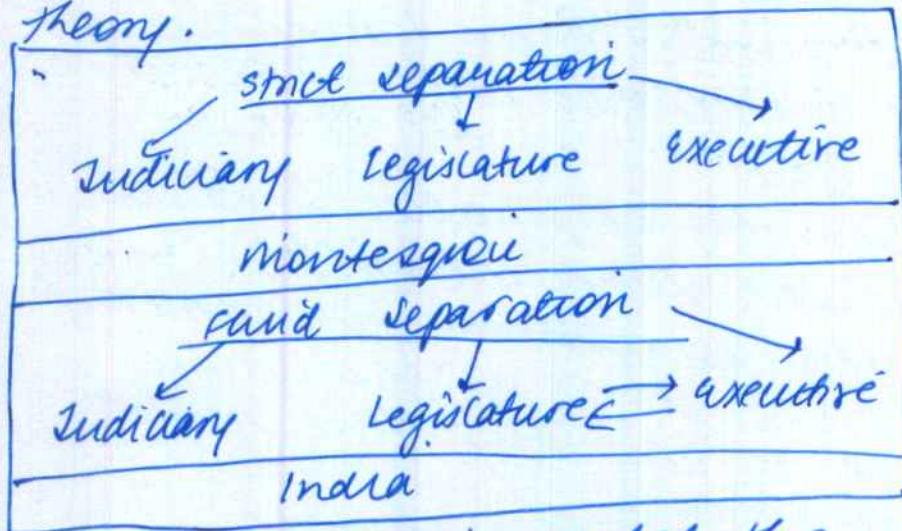 theory.
strict separation
Judiciary Legislature Executive
Montesqiou
fluid separation
Judiciary Legislature Executive
India